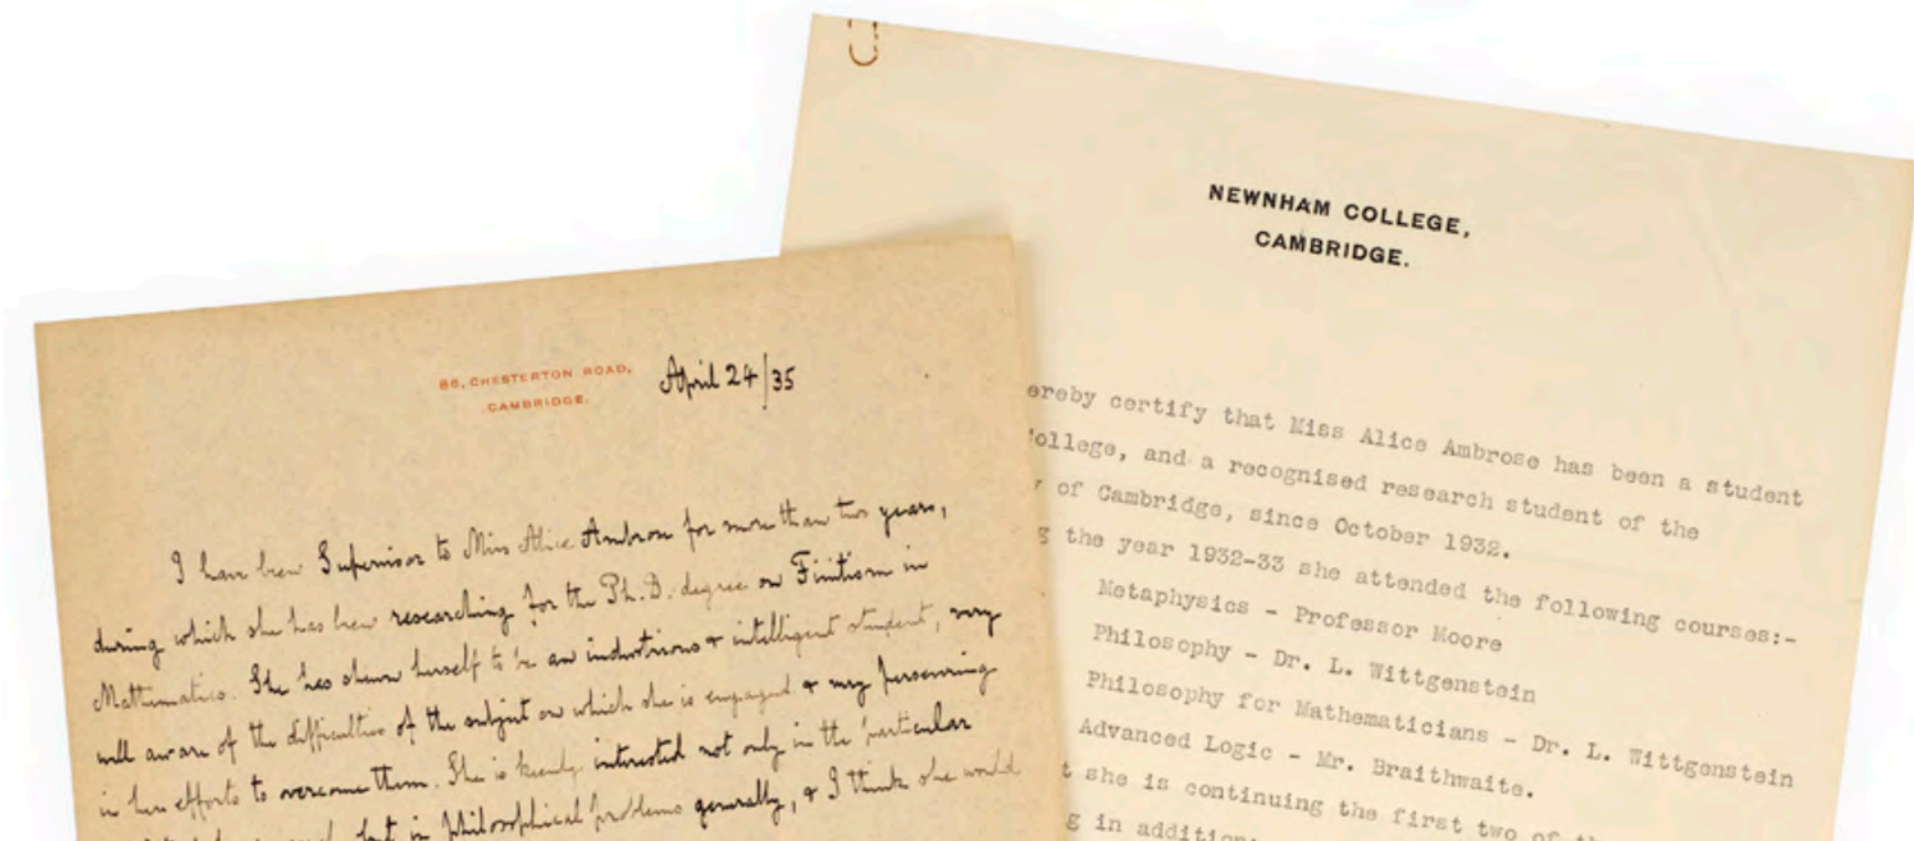 86, CHESTERTON ROAD,
CAMBRIDGE.
April 24/35
I have been Supervisor to Miss Alice Ambrose for more than two years,
during which she has been researching for the Ph.D. degree on Finitism in
Mathematics. She has shewn herself to be an industrious & intelligent student, very
well aware of the difficulties of the subject on which she is engaged & very persevering
in her efforts to overcome them. She is keenly interested not only in the particular
but in philosophical problems generally, & I think she would
NEWNHAM COLLEGE,
CAMBRIDGE.
ereby certify that Miss Alice Ambrose has been a student
ollege, and a recognised research student of the
y of Cambridge, since October 1932.
g the year 1932-33 she attended the following courses:-
Metaphysics - Professor Moore
Philosophy - Dr. L. Wittgenstein
Philosophy for Mathematicians - Dr. L. Wittgenstein
Advanced Logic - Mr. Braithwaite.
t she is continuing the first two of th
g in addition: